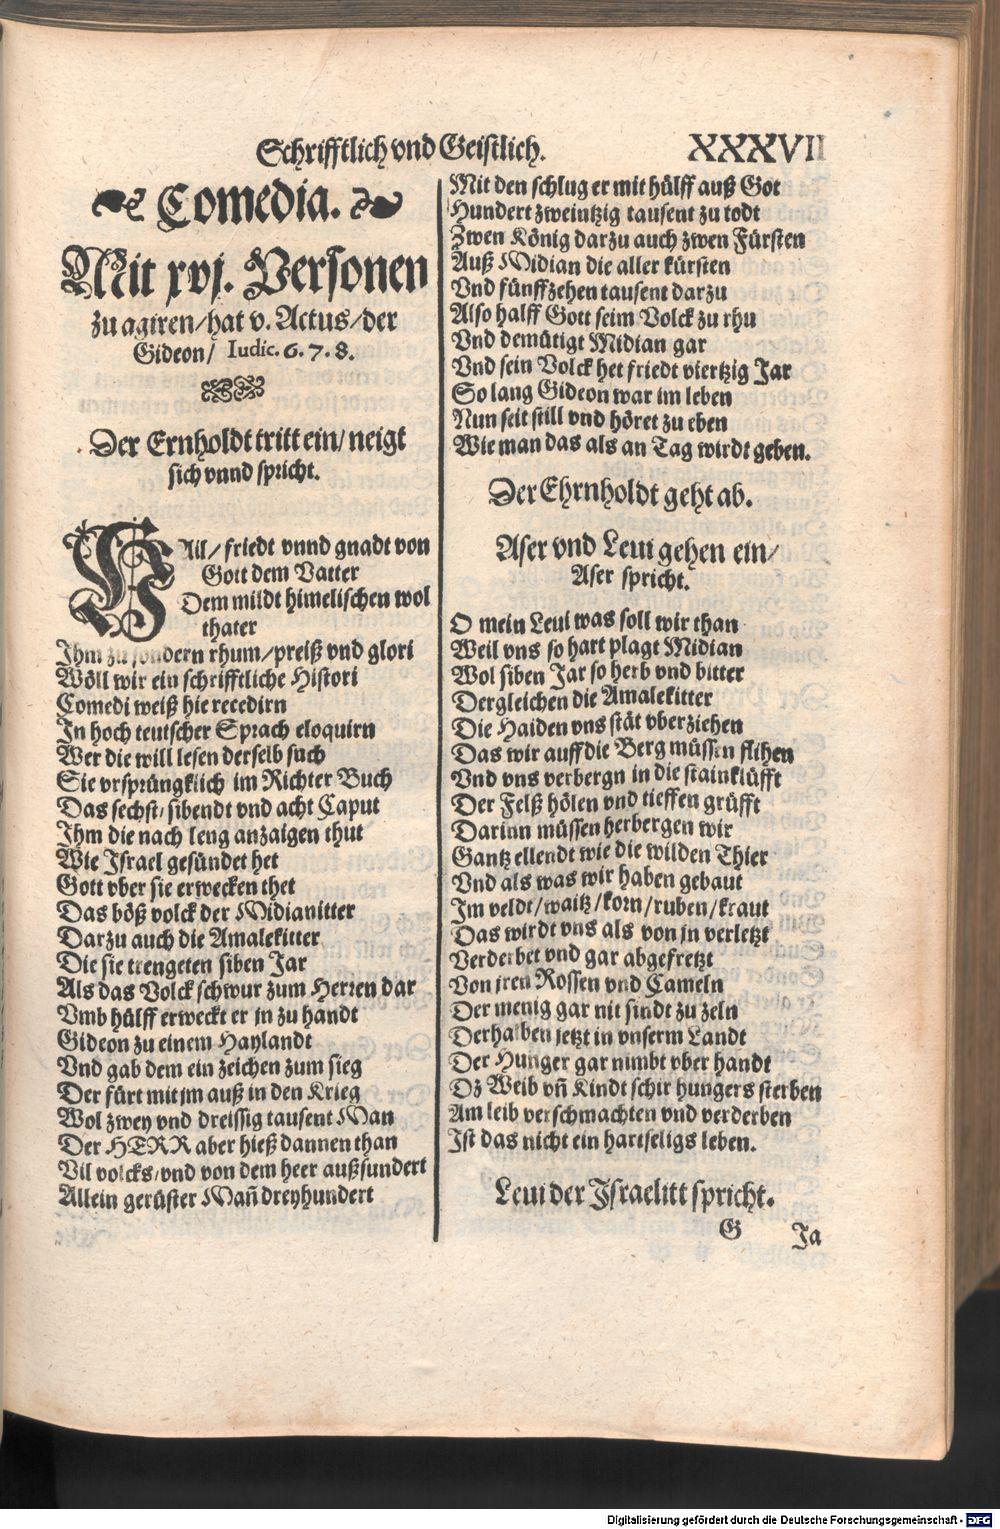 Schrifftlich vnd Geistlich.
XXXVII
Comedia.
Mit xvj. Personen
zu agiren/hat v. Actus/der
Gideon/ Iudic. 6. 7. 8.
Der Ernholdt tritt ein/ neigt
sich vnnd spricht.
HAil/ friedt vnnd gnadt von
Gott dem Vatter
Dem mildt himelischen wol
thater
Ihm zu sondern rhum/preiß vnd glori
Wöll wir ein schrifftliche Histori
Comedi weiß hie recedirn
In hoch teutscher Sprach eloquirn
Wer die will lesen derselb such
Sie vrsprüngklich im Richter Buch
Das sechst/ sibendt vnd acht Caput
Ihm die nach leng anzaigen thut
Wie Israel gesündet het
Gott vber sie erwecken thet
Das böß volck der Midianitter
Darzu auch die Amalekitter
Die sie trengeten siben Jar
Als das Volck schwur zum Herren dar
Vmb hülff erweckt er jn zu handt
Gideon zu einem Haylandt
Vnd gab dem ein zeichen zum sieg
Der fürt mit jm auß in den Krieg
Wol zwey vnd dreissig tausent Man
Der HERR aber hieß dannen than
Vil volcks/vnd von dem heer außsundert
Allein gerüster Mañ dreyhundert
Mit den schlug er mit hülff auß Got
Hundert zweintzig tausent zu todt
Zwen König darzu auch zwen Fürsten
Auß Midian die aller kürsten
Vnd fünffzehen tausent darzu
Also halff Gott seim Volck zu rhu
Vnd demütigt Midian gar
Vnd sein Volck het friedt viertzig Jar
So lang Gideon war im leben
Nun seit still vnd höret zu eben
Wie man das als an Tag wirdt geben.
Der Ehrnholdt geht ab.
Aser vnd Leui gehen ein/
Aser spricht.
O mein Leui was soll wir than
Weil vns so hart plagt Midian
Wol siben Jar so herb vnd bitter
Dergleichen die Amalekitter
Die Haiden vns stät vberziehen
Das wir auff die Berg müssen flihen
Vnd vns verbergn in die stainklüfft
Der Felß hölen vnd tieffen grüfft
Darinn müssen herbergen wir
Gantz ellendt wie die wilden Thier
Vnd als was wir haben gebaut
Im veldt/waitz/korn/ruben/kraut
Das wirdt vns als von jn verletzt
Verderbet vnd gar abgefretzt
Von jren Rossen vnd Cameln
Der menig gar nit sindt zu zeln
Derhalben jetzt in vnserm Landt
Der Hunger gar nimbt vber handt
Dz Weib vñ Kindt schir hungers sterben
Am leib verschmachten vnd verderben
Ist das nicht ein hartseligs leben.
Leui der Israelitt spricht.
G
Ja
Digitalisierung gefördert durch die Deutsche Forschungsgemeinschaft - DFG